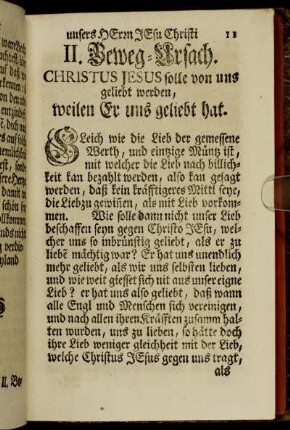 unsers HErrn JEsu Christi 11
II. Beweg-Ursach.
CHRISTUS JESUS solle von uns
geliebt werden,
weilen Er uns geliebt hat.
Gleich wie die Lieb der gemessene
Werth, und eintzige Müntz ist,
mit welcher die Lieb nach billich-
keit kan bezahlt werden, also kan gesagt
werden, daß kein kräfftigeres Mittl seye,
die Lieb zu gewiñen, als mit Lieb vorkom-
men. Wie solle dann nicht unser Lieb
beschaffen seyn gegen Christo JEsu, wel-
cher uns so inbrünstig geliebt, als er zu
liebẽ mächtig war? Er hat uns unendlich
mehr geliebt, als wir uns selbsten lieben,
und wie weit giesset sich nit aus unser eigne
Lieb? er hat uns also geliebt, daß wann
alle Engl und Menschen sich vereinigen,
und nach allen ihren Kräfften zusamm hal-
ten wurden, uns zu lieben, so hätte doch
ihre Lieb weniger gleichheit mit der Lieb,
welche Christus JEsus gegen uns tragt,
als